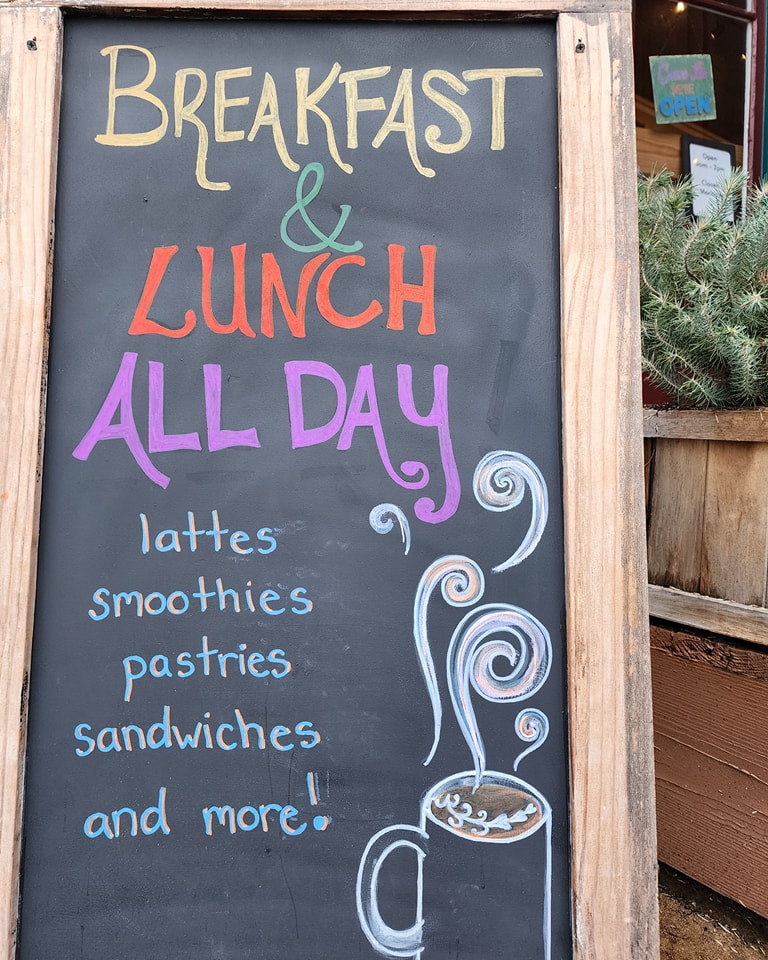 BREAKFAST
&
LUNCH
ALL DAY
lattes
smoothies
pastries
sandwiches
and more!
OPEN
Open